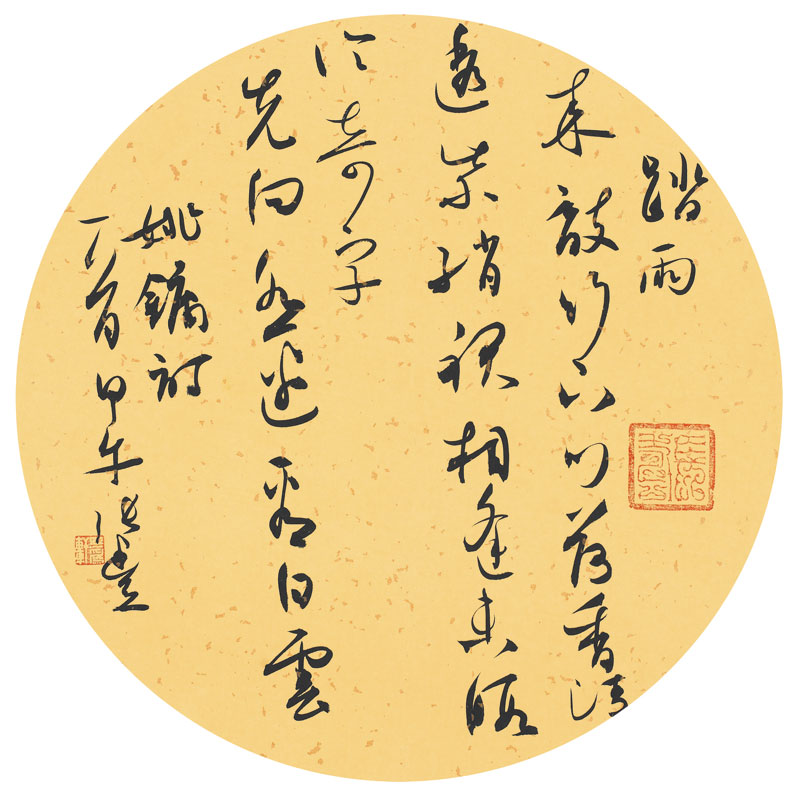 踏雨
来敲竹下门荷香清
透紫绡裙相逢未暇
论奇字
先向水边看白雲
姚鏞詩
一首甲午